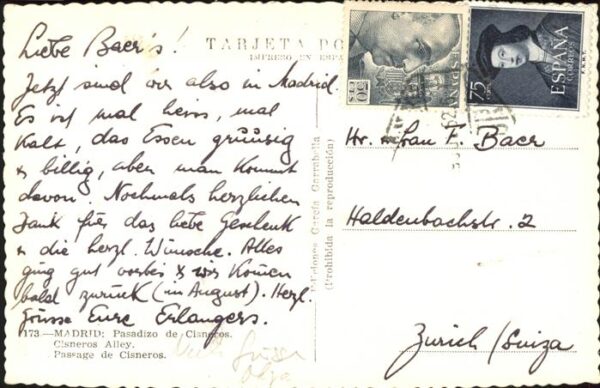 Liebe Baer's!
TARJETA PO
IMPRESO EN ESPA
Jetzt sind wir also in Madrid.
Es ist mal heiss, mal
kalt, das Essen grüüsig
& billig, aber man kommt
davon. Nochmals herzlichen
Dank für das liebe Geschenk
& die herzl. Wünsche. Alles
ging gut vorbei & wir kommen
bald zurück (in August). Herzl.
Grüsse Eure Erlangers.
173.—MADRID: Pasadizo de Cisneros.
Cisneros Alley.
Passage de Cisneros.
Ediciones García Garrabella
(Prohibida la reproducción)
50
CTS
ESPAÑA
75
CTS
ESPAÑA
CORREOS
F.N.M.T.
Hr. & Frau F. Baer
Haldenbachstr. 2
Zurich / Suiza